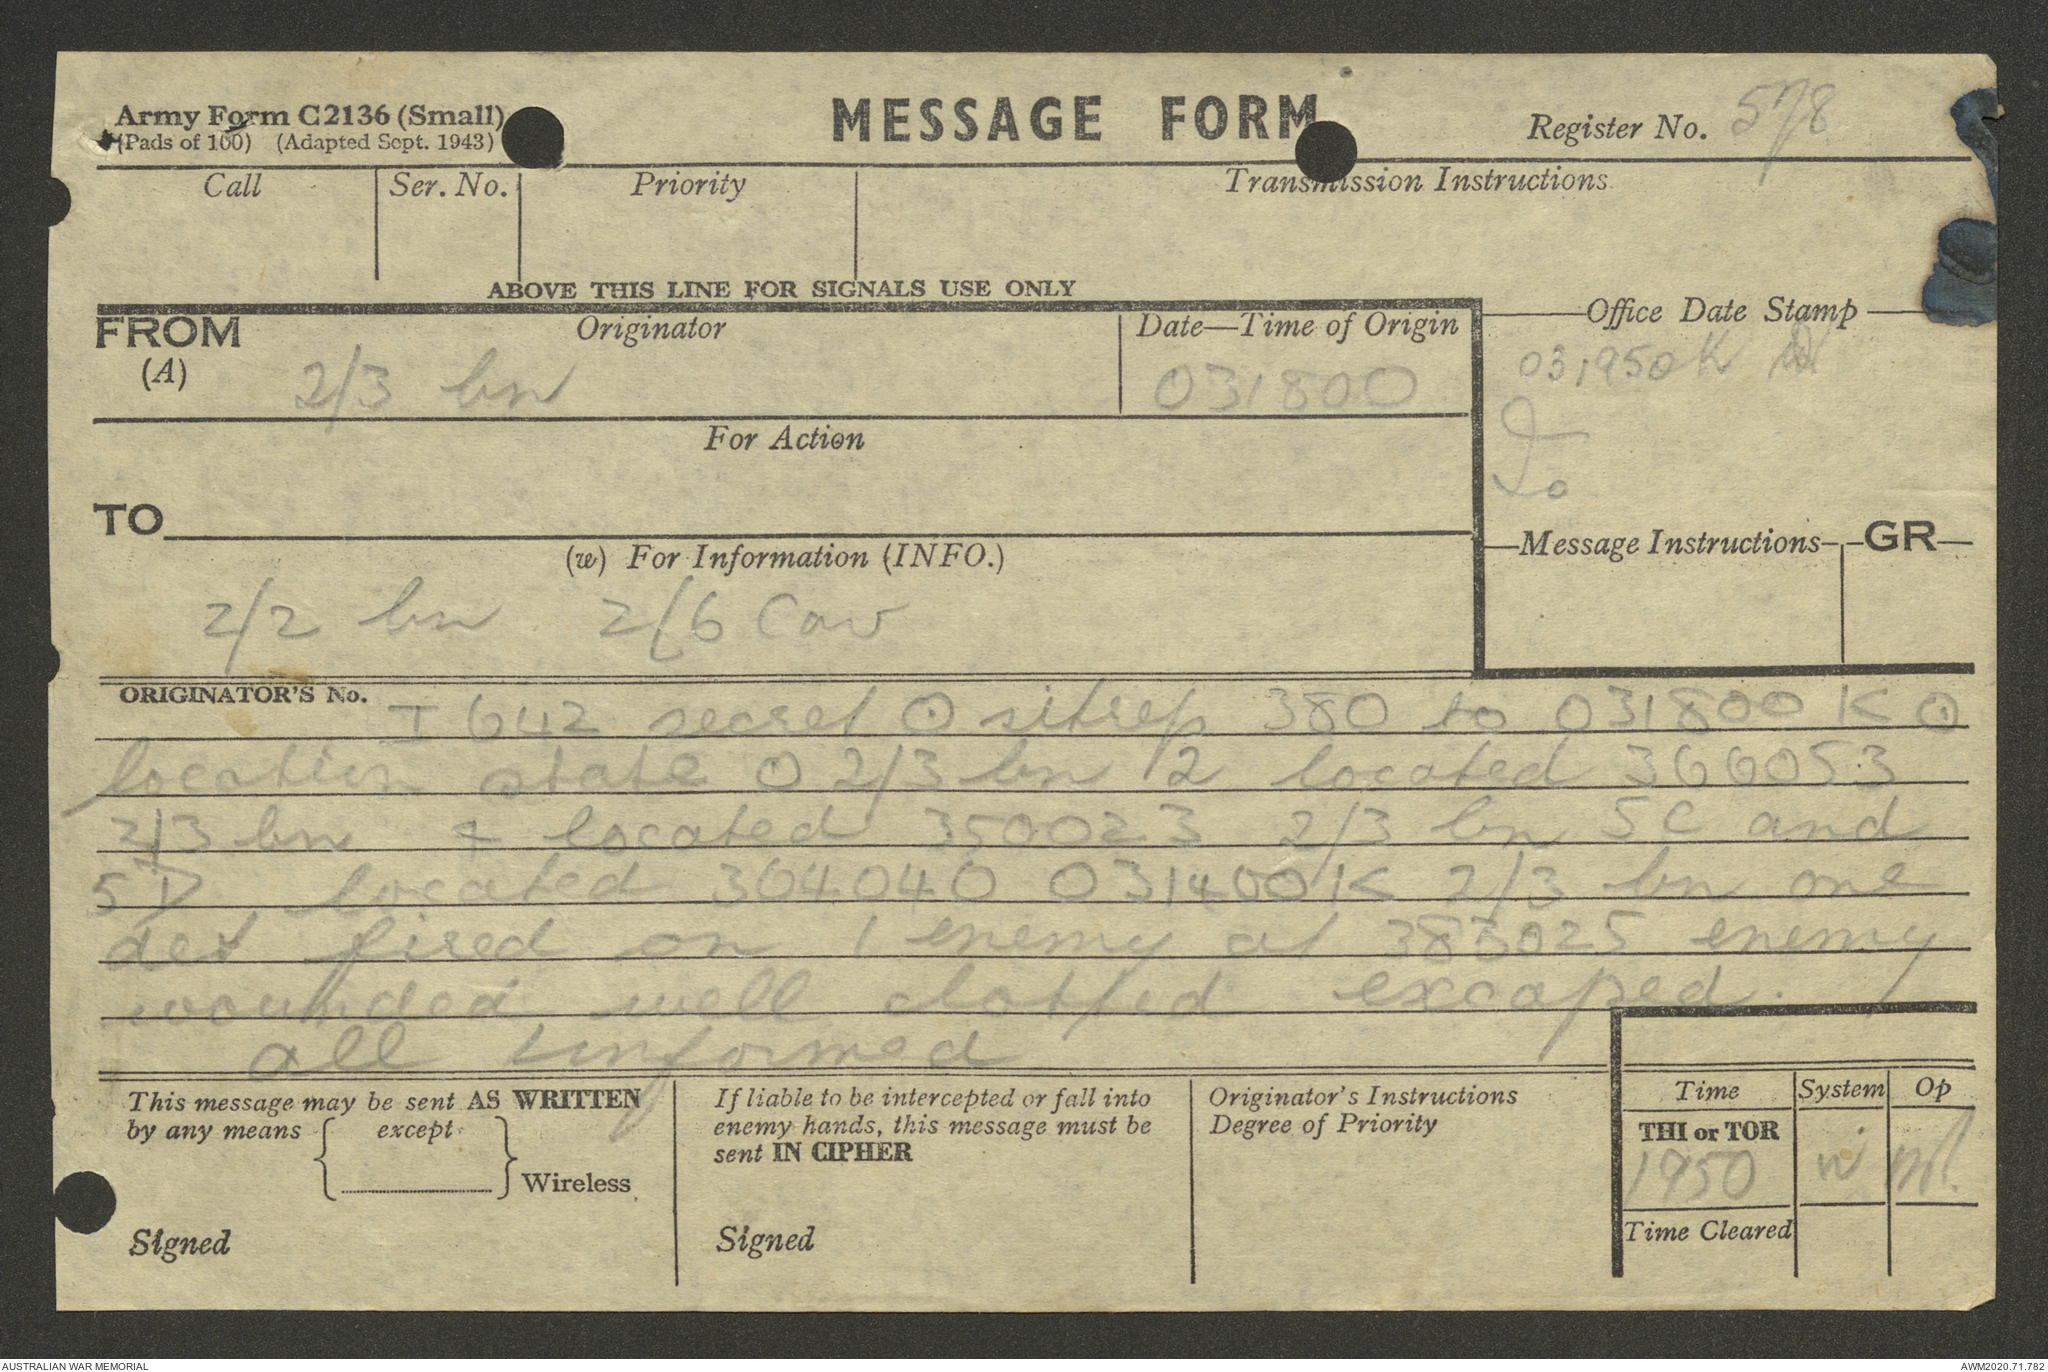 Army Form C2136 (Small)
(Pads of 100) (Adapted Sept. 1943)
MESSAGE FORM
Register No. 578
Call
Ser. No.
Priority
Transmission Instructions
ABOVE THIS LINE FOR SIGNALS USE ONLY
FROM
(A)
Originator
2/3 bn
Date—Time of Origin
031800
Office Date Stamp
031950K
For Action
TO
Io
(w) For Information (INFO.)
2/2 bn 2/6 Cav
Message Instructions
GR
ORIGINATOR'S No.
I 642 secret O sitrep 380 to 031800K O
location state O 2/3 bn 12 located 366053
2/3 bn located 350023 2/3 bn 5C and
5D located 364040 031400K 2/3 bn one
det fired on 1 enemy at 383025 enemy
wounded well clothed excaped.
all informed
This message may be sent AS WRITTEN
by any means except
Wireless
Signed
If liable to be intercepted or fall into
enemy hands, this message must be
sent IN CIPHER
Signed
Originator's Instructions
Degree of Priority
Time
System
Op
THI or TOR
1950
W
Time Cleared
AUSTRALIAN WAR MEMORIAL
AWM2020.71.782